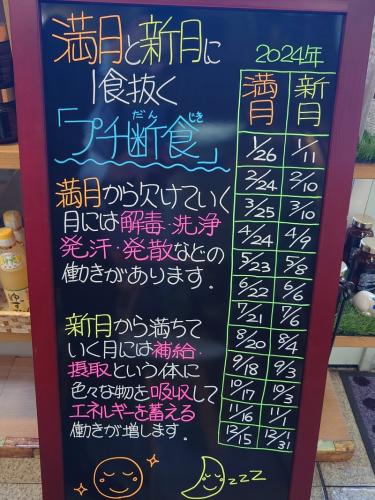 満月と新月に
1食抜く
だんじき
「プチ断食」
満月から欠けていく
月には解毒・洗浄
発汗・発散などの
働きがあります。
新月から満ちて
いく月には補給・
摂取という体に
色々な物を吸収して
エネルギーを蓄える
働きが増します。
zzz
2024年
満月 新月
1/26 1/11
2/24 2/10
3/25 3/10
4/24 4/9
5/23 5/8
6/22 6/6
7/21 7/6
8/20 8/4
9/18 9/3
10/17 10/3
11/16 11/1
12/15 12/1 31
ゆず